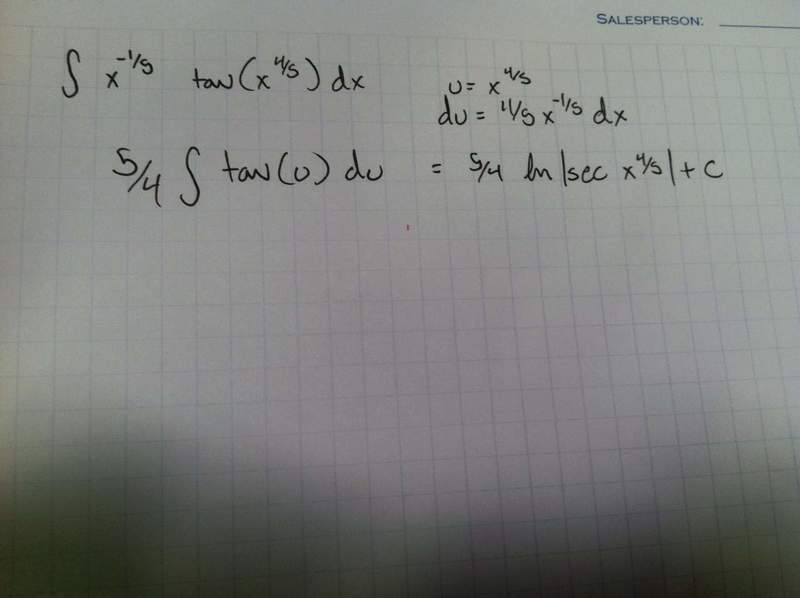 SALESPERSON:
∫ x^{-1/5} tan(x^{4/5}) dx
u = x^{4/5}
du = 4/5 x^{-1/5} dx
5/4 ∫ tan(u) du = 5/4 ln |sec x^{4/5}| + C